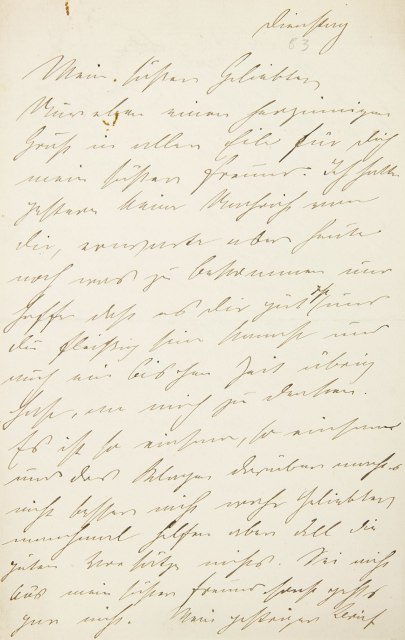 Dienstag
63
Mein süßer Geliebter,
Nur eben einen herzinnigen
Gruß in aller Eile für Dich
mein süßer Freund. Ich hatte
gestern keine Nachricht von
dir, erwarte aber heute
noch was zu bekommen und
hoffe daß es dir gut geht und
du fleißig sein kannst und
auch ein bischen Zeit übrig
hast, an mich zu denken.
Es ist so einsam, so einsam
und das Klagen darüber macht's
nicht besser nicht wahr Geliebter,
manchmal helfen aber all die
guten Vorsätze nichts. Sei nicht
bös mein süßer Freund sonst geht's
gar nicht. Mein gestriger Brief